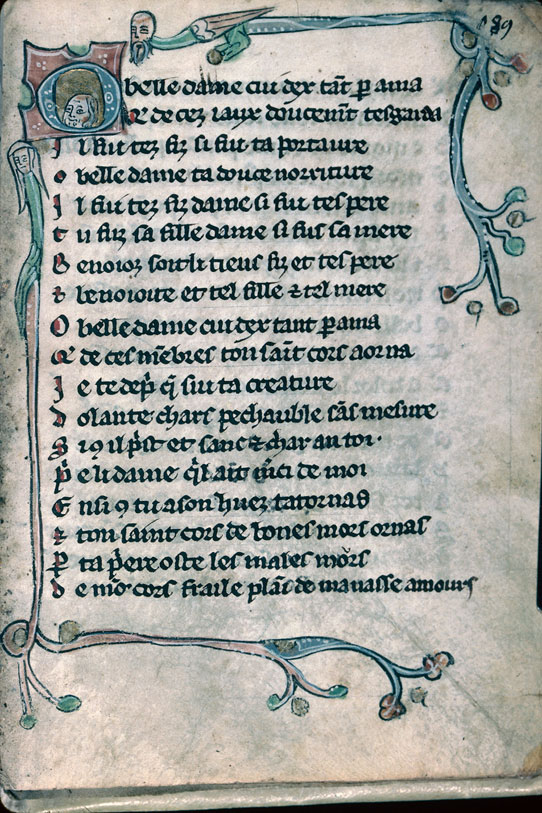 189
O belle dame cui dex tāt p ama
Qe de cez iaux doucemt tesgarda
I l fiu tez fiz si fiu ta porteure
O belle dame ta douce norreture
I l fiu tez fiz dame si fiu tes pere
t u fuz sa fille dame si fus sa mere
B enoioz soit li tieus fiz et tes pere
⁊ benoioite et tel fille ⁊ tel mere
O belle dame cui dex tant p ama
Qe de ces mēbres ton saīt cors aorna
I e te dep̄ q̄ siu ta creature
d olante chars pechauble sās mesure
S i ꝯ il pst et sanc ⁊ char an toi
p e li dame ql ait mci de moi
E nsi ꝯ tu a son huez ta tornas
⁊ ton saint cors de bones mors ornas
P ta pere oste les males mors
d e mō cors fraile plai de mauasse amours